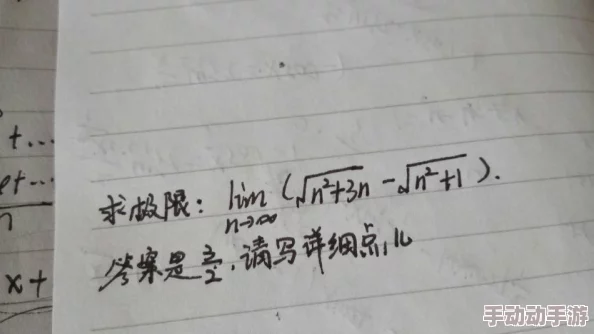 t...
et...
n
x+
求极限: lim n→∞ (√n²+3n - √n²+1).
答案是 3/2, 请写详细点儿
手动动手游